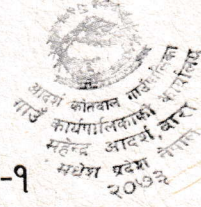 आदर्श कोतवाल गाउँपालिका
गाउँ कार्यपालिकाको कार्यालय
महेन्द्र आदर्श, बारा
मधेश प्रदेश नेपाल
२०७३
-१